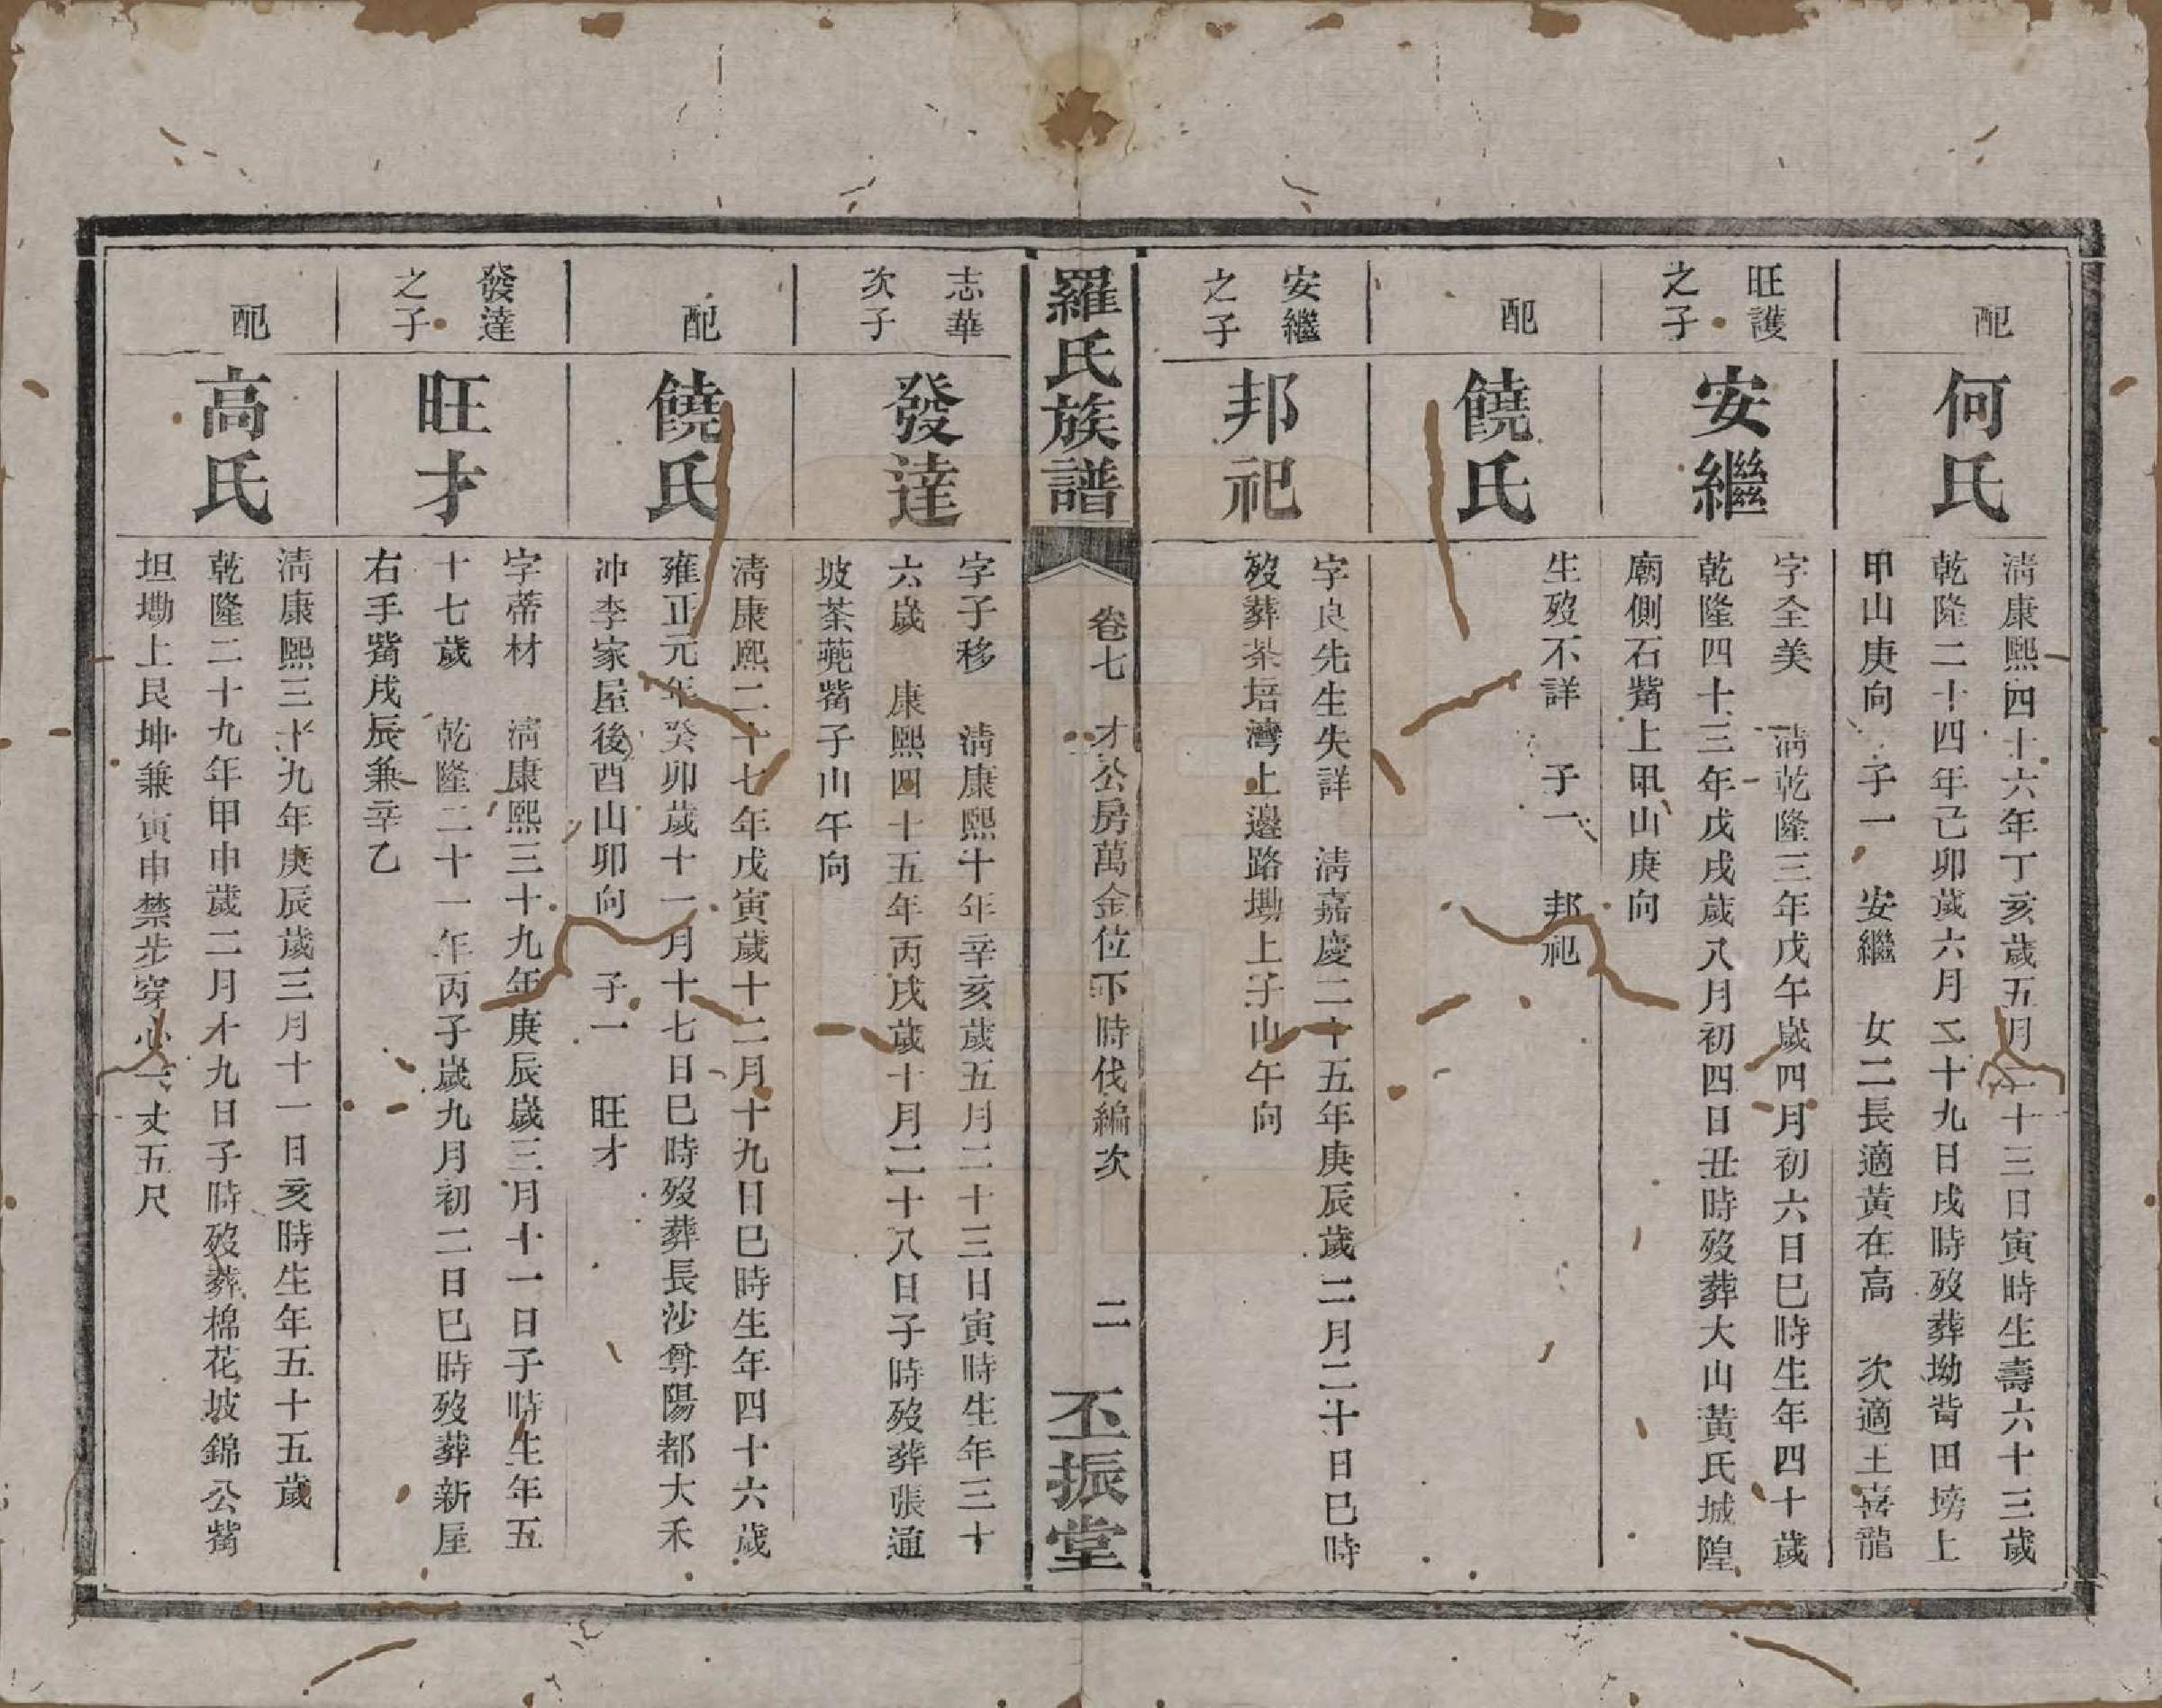 配
何氏
淸康熙四十六年丁亥歲五月二十三日寅時生壽六十三歲
乾隆二十四年己卯歲六月二十九日戌時歿葬坳背田塝上
甲山庚向　子一　安繼　女二長適黃在高　次適王喜龍
旺護
之子
安繼
字全美　淸乾隆三年戊午歲四月初六日巳時生年四十歲
乾隆四十三年戊戌歲八月初四日丑時歿葬大山黃氏城隍
廟側石觜上甲山庚向
配
饒氏
生歿不詳　子一　邦祀
安繼
之子
邦祀
字良先生失詳　淸嘉慶二十五年庚辰歲二月二十日巳時
歿葬茶培灣上邊路墈上子山午向
羅氏族譜
卷七　才公房萬金位下時伐編次
二
丕振堂
志華
次子
發達
字子移　淸康熙十年辛亥歲五月二十三日寅時生年三十
六歲　康熙四十五年丙戌歲十月二十八日子時歿葬張通
坡茶蔸觜子山午向
配
饒氏
淸康熙二十七年戊寅歲十二月十九日巳時生年四十六歲
雍正元年癸卯歲十一月十七日巳時歿葬長沙尊陽都大禾
沖李家屋後酉山卯向　子一　旺才
發達
之子
旺才
字蒂材　淸康熙三十九年庚辰歲三月十一日子時生年五
十七歲　乾隆二十一年丙子歲九月初二日巳時歿葬新屋
右手觜戌辰兼辛乙
配
高氏
淸康熙三十九年庚辰歲三月十一日亥時生年五十五歲
乾隆二十九年甲申歲二月十九日子時歿葬棉花坡錦公觜
坦墈上艮坤兼寅申禁步穿心一丈五尺